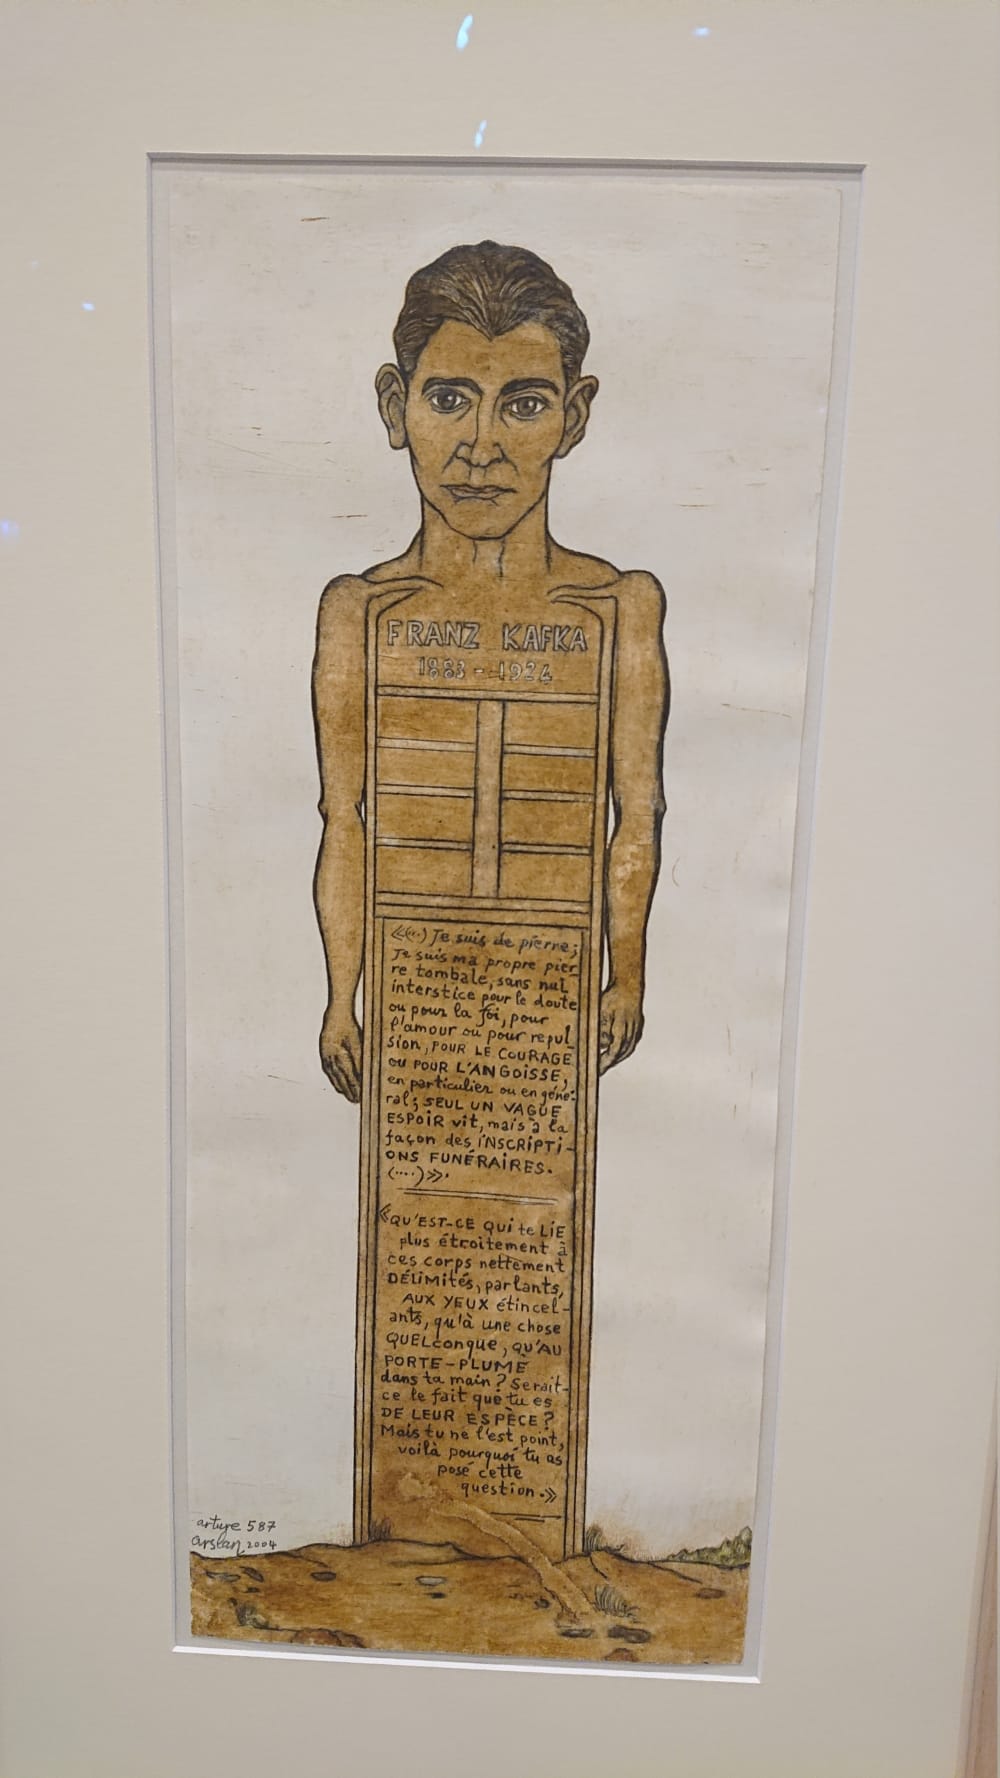 FRANZ KAFKA
1883-1924
«(...) Je suis de pierre;
Je suis ma propre pier_
re tombale, sans nul
interstice pour le doute
ou pour la foi, pour
l'amour ou pour repul_
sion, POUR LE COURAGE
ou POUR L'ANGOISSE,
en particulier ou en géné-
ral; SEUL UN VAGUE
ESPOIR vit, mais à la
façon des INSCRIPTI-
ONS FUNÉRAIRES.
(....)».
«QU'EST-CE QUI te LIE
plus étroitement à
ces corps nettement
DÉLIMITÉS, parlants,
AUX YEUX étincel-
ants, qu'à une chose
QUELconque, QU'AU
PORTE-PLUME
dans ta main? Serait-
ce le fait que tu es
DE LEUR ESPÈCE?
Mais tu ne l'est point,
voilà pourquoi tu as
posé cette
question.»
arture 587
arslan 2004